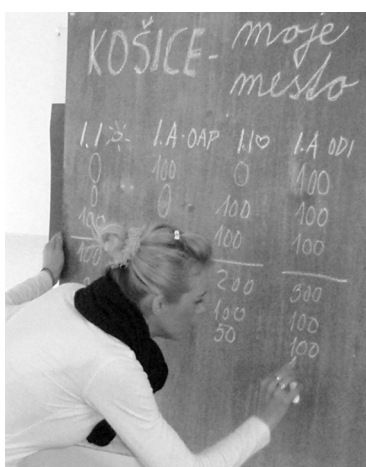 KOŠICE - moje
mesto
I.I I.A-OAP I.I♡ I.A ODI
0 100 0 100
0 0 100 100
100 100 100
100 200 300
100 100
50 100